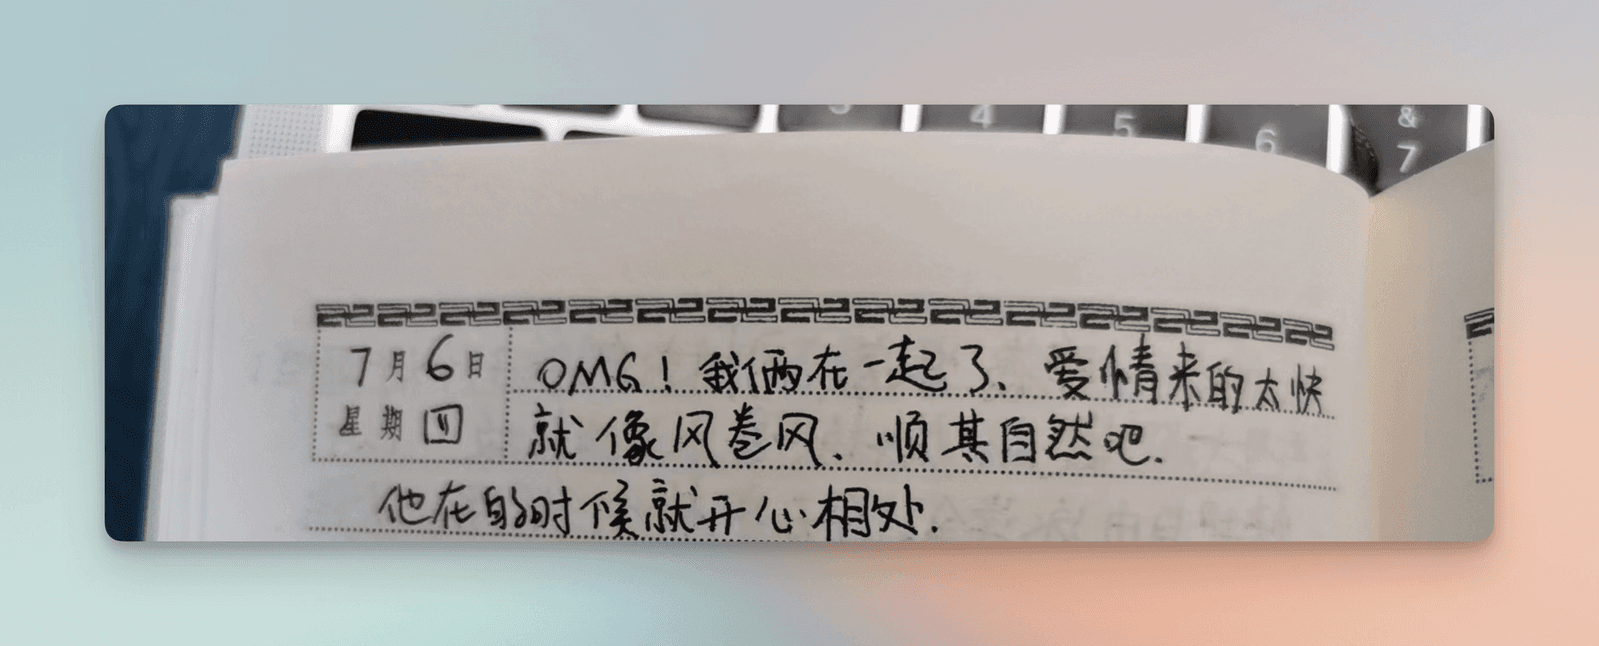 3 4 5 6 & 7
7月6日 OMG！我俩在一起了、爱情来的太快
星期四 就像风卷风、顺其自然吧.
他在的时候就开心相处.